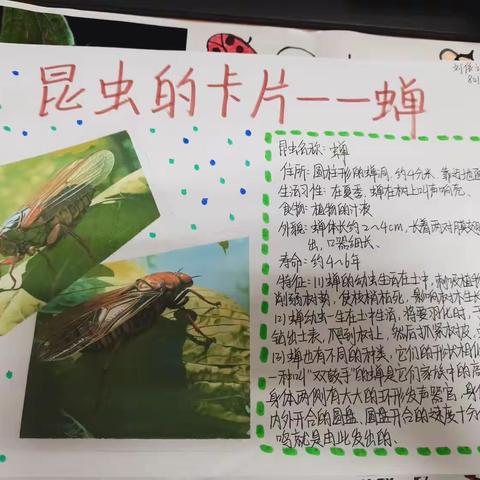 昆虫的卡片——蝉
昆虫名称：蝉
住所：圆柱形的蝉洞，约4分米，靠近地面
生活习性：在夏季，蝉在树上叫声响亮。
食物：植物的汁液
外貌：蝉体长约2~4cm，长着两对膜翅
出，口器细长。
寿命：约4~6年
特征：(1)蝉的幼虫生活在土中，
削弱树势，使枝梢枯死，影响树木生长
(2)蝉幼虫一生在土中生活，将要羽化时，
钻出土表，爬到树上，然后抓紧树皮，
(3)蝉也有不同的种类，它们的形状相似
一种叫"双鼓手"的蝉是它们家族中的
身体两侧有大大的环形发声器官，身
内外开合的圆盘，圆盘开合的速度十分
鸣就是由此发出的。